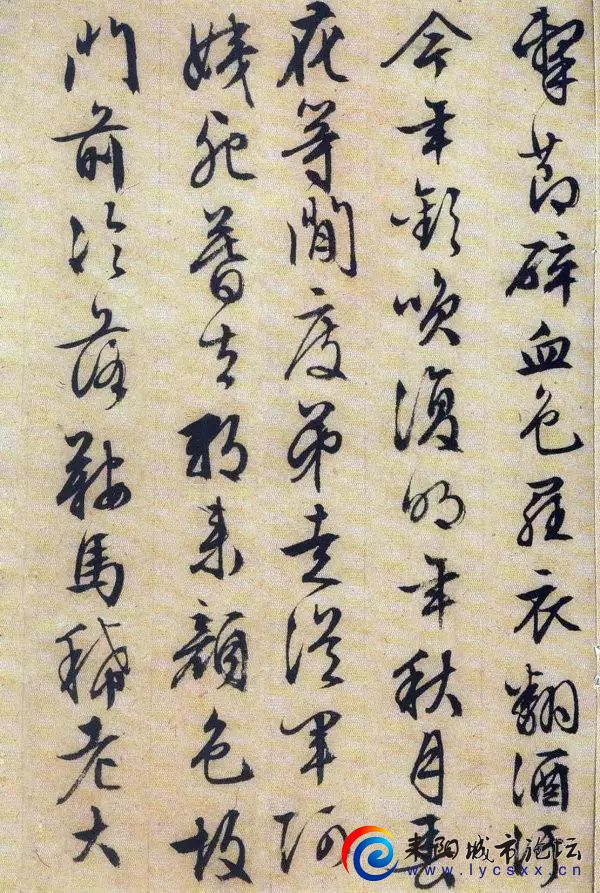 擊節碎血色羅衣翻酒
今年歡咲復明年秋月春
花等閒度弟走從軍阿
姨死暮去朝來顏色故
門前冷落鞍馬稀老大
耒阳城市论坛
www.lycsxx.cn